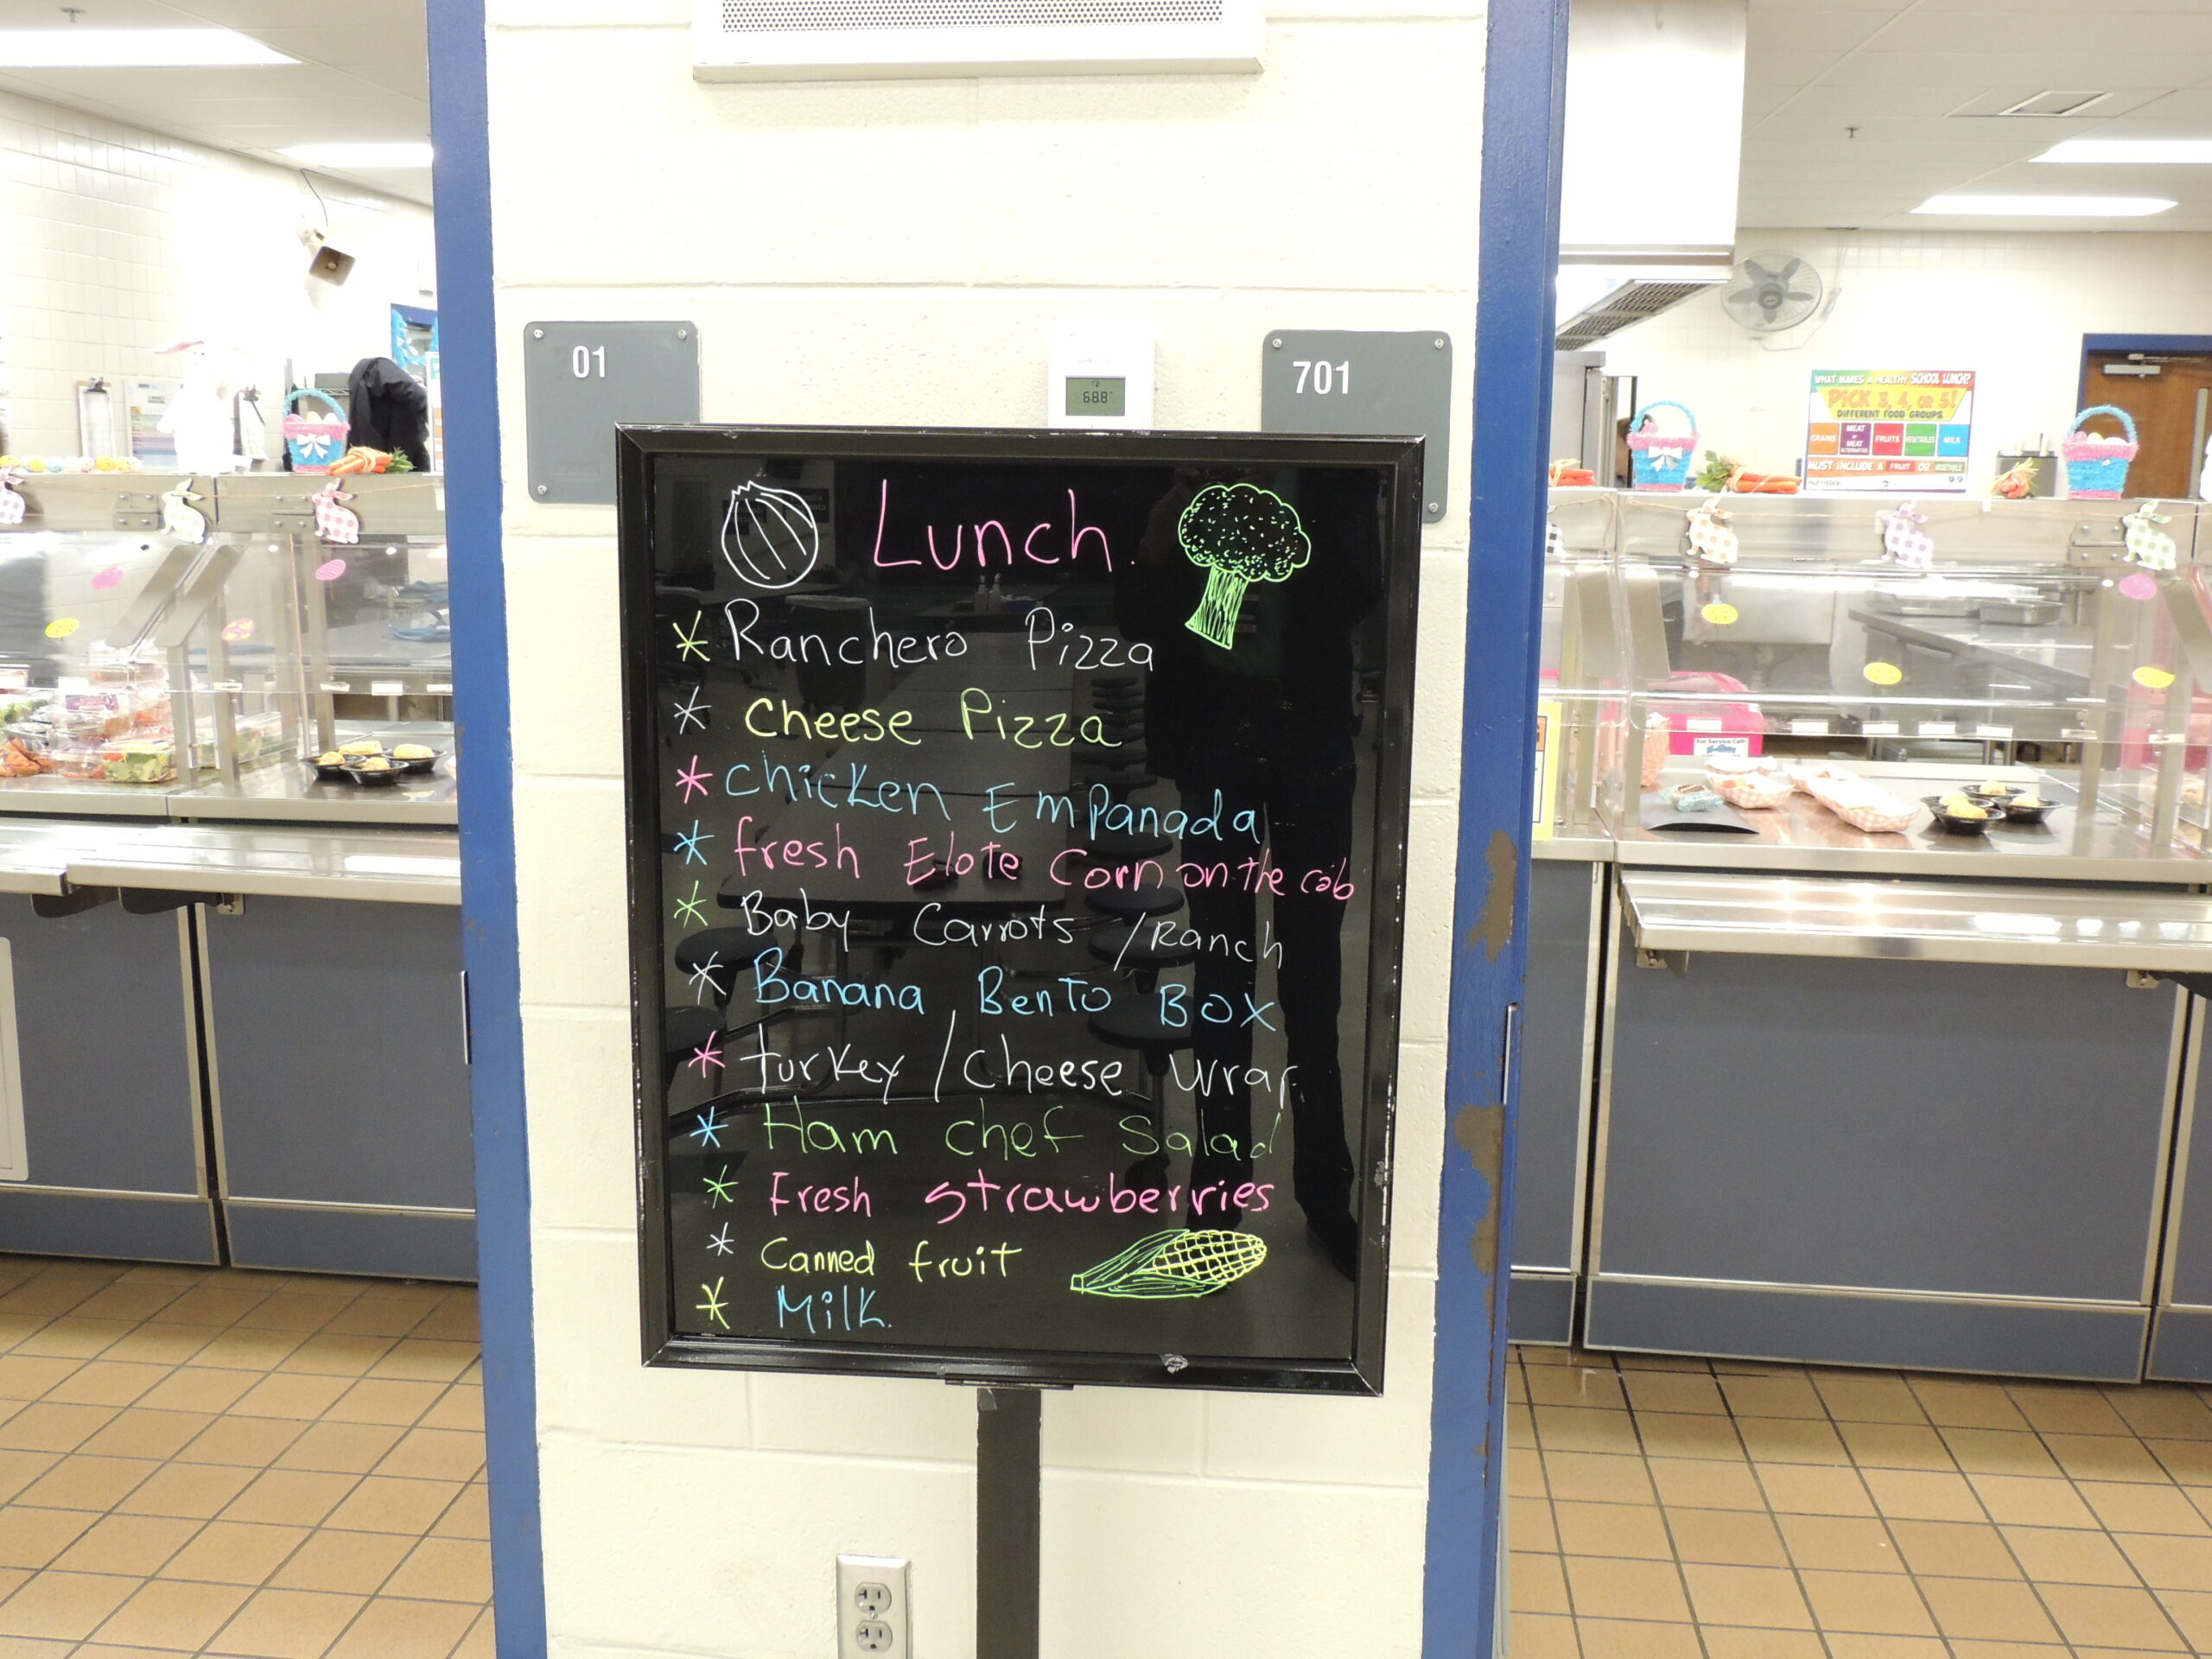 01
701
68.8°
WHAT MAKES A HEALTHY SCHOOL LUNCH?
PICK 3, 4, OR 5!
DIFFERENT FOOD GROUPS
GRAINS
MEAT or MEAT ALTERNATIVE
FRUITS
VEGETABLES
MILK
MUST INCLUDE A FRUIT OR VEGETABLE
nutrislice
Lunch.
* Ranchero Pizza
* Cheese Pizza
* Chicken Empanada
* fresh Elote Corn on the cob
* Baby Carrots / Ranch
* Banana Bento Box
* turkey / Cheese wrap
* Ham chef Salad
* Fresh strawberries
* Canned fruit
* Milk.
For Service Call: